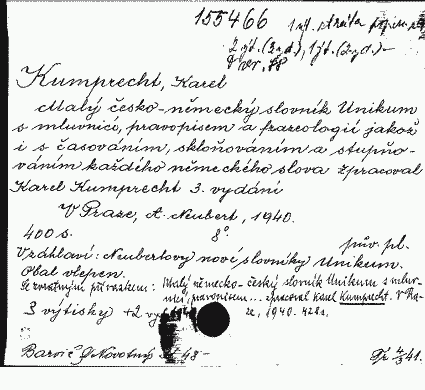 155466
2 výt. (2 yd.), 1 výt. (2 yd.) –
Kumprecht, Karel
Malý česko-německý slovník Unikum
s mluvnicí, pravopisem a frazeologií jakož
i s časováním, skloňováním a stupňo-
váním každého německého slova zpracoval
Karel Kumprecht 3. vydání
V Praze, A. Neubert, 1940.
400 s. 8° pův. pl.
Vzáhlaví: Neubertovy nové slovníky Unikum.
Obal vlepen.
Malý německo-český slovník Unikum s mluv-
nicí, pravopisem... zpracoval Karel Kumprecht. V Pra-
ze, 1940. 428 s.
3 výtisky +2
Barvič & Novotný 48-